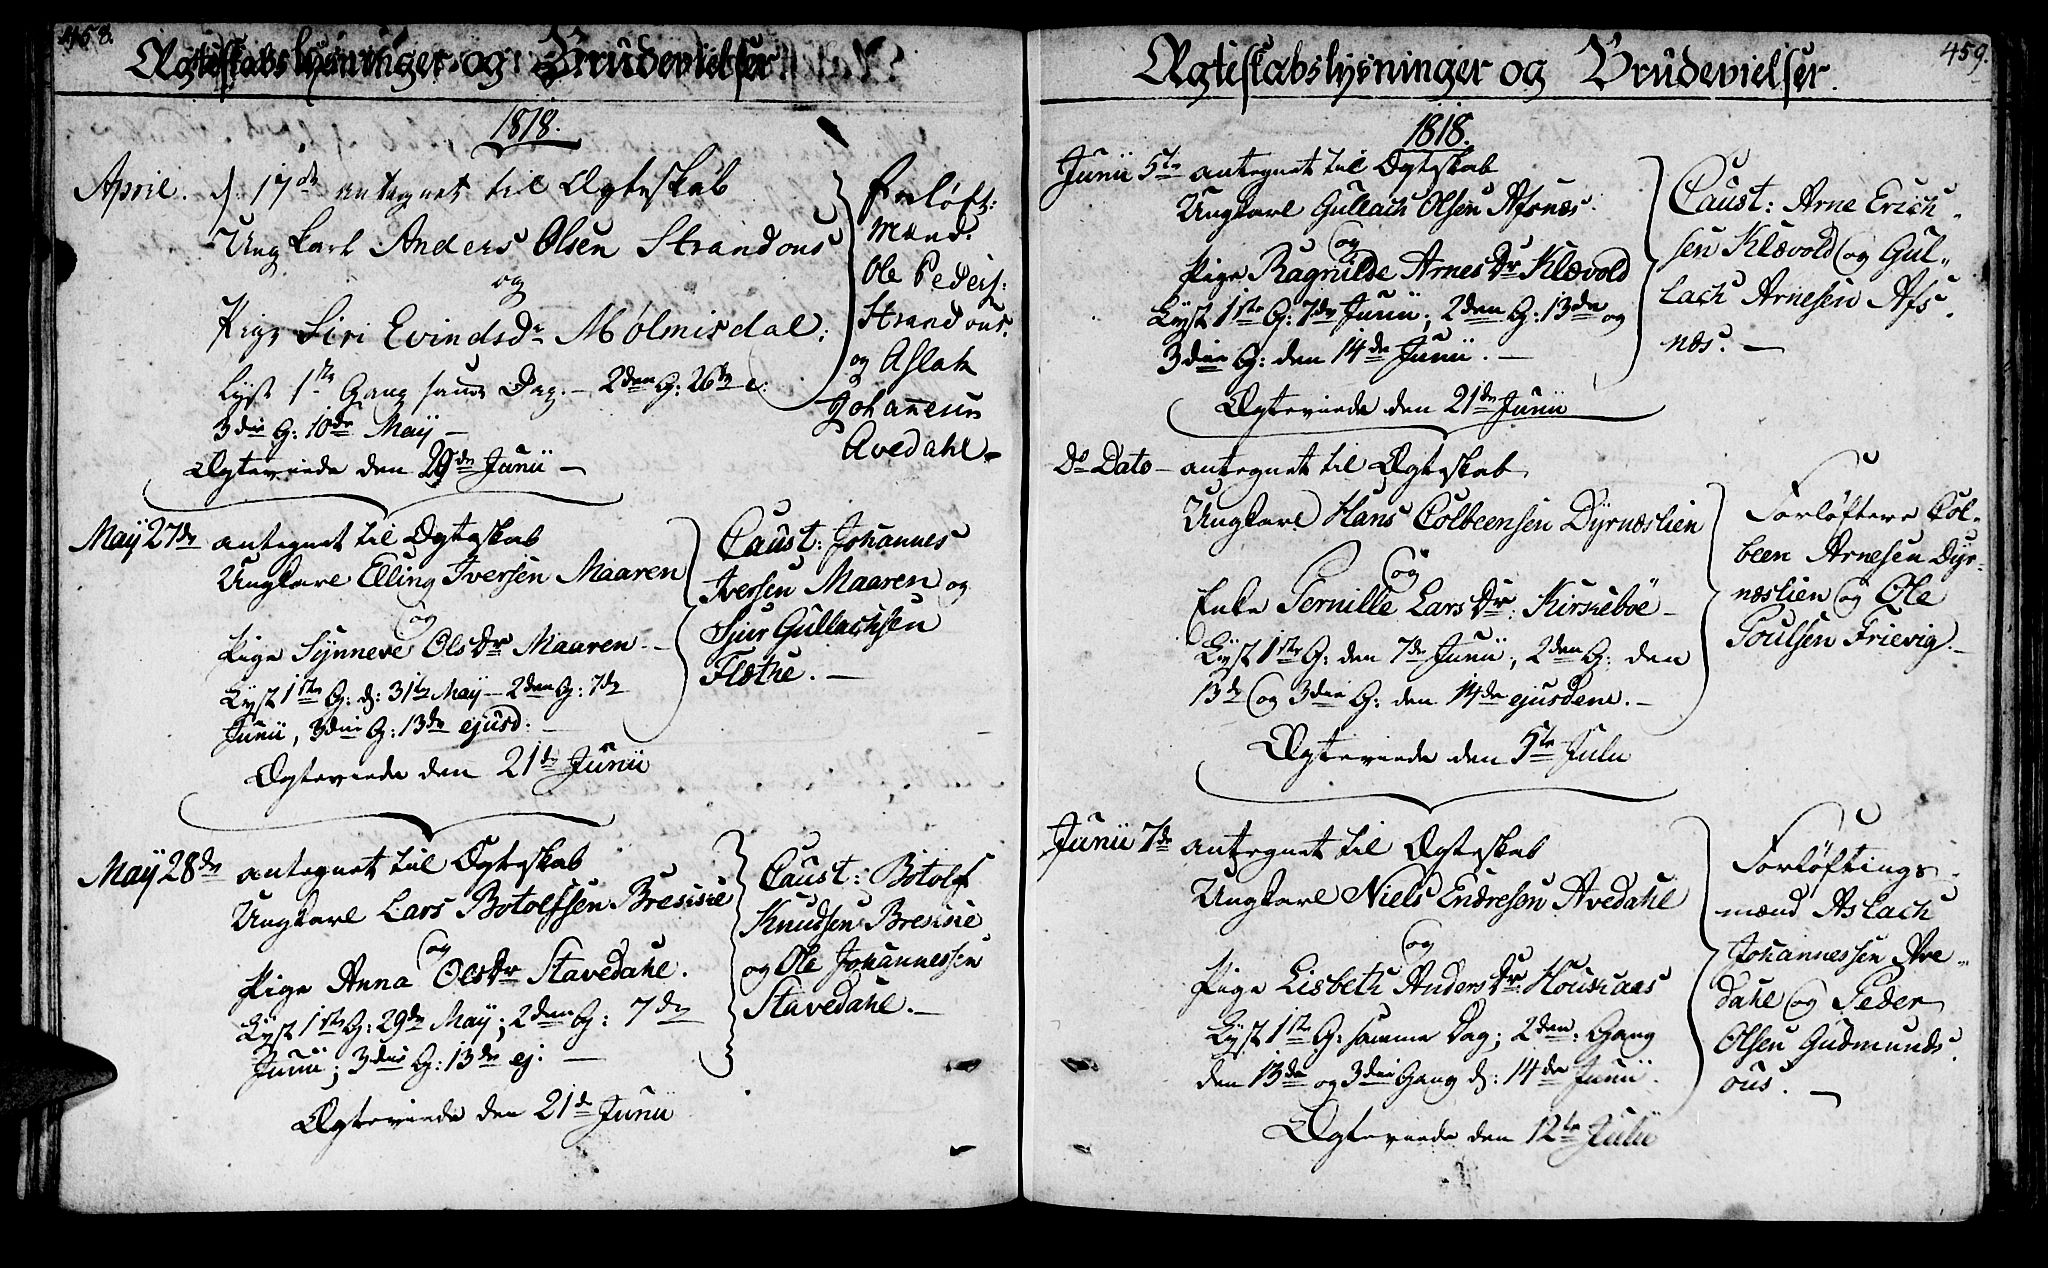 458.
Ægteskabslysninger og Brudevielser
1818.
April. d. 17de antegnet til Ægteskab
Ungkarl Anders Olsen Strandous
og
Pige Siri Evindsdr Mølmisdal.
Lyst 1ste Gang samme Dag. - 2den G: 26de
3die G: 10de Maÿ -
Ægteviede den 29de Junii -
Forløft:
Mænd:
Ole Peders:
Strandous.
og Aslak
Johannesen
Avedahl -
Maÿ 27de antegnet til Ægteskab
Ungkarl Elling Iversen Maaren
og
Pige Sÿnneve Olsdr Maaren. -
Lyst 1ste G: d: 31te Maÿ - 2den G: 7de
Junii, 3die G: 13de ejusd: -
Ægteviede den 21de Junii
Caust: Johannes
Iversen Maaren og
Siur Gullachsen
Flæthe. -
Maÿ 28de antegnet til Ægteskab
Ungkarl Lars Botolfsen Bresisie
og
Pige Anna Olsdr Stavedahl.
Lyst 1ste G: 29de Maÿ; 2den G: 7de
Junii; 3die G: 13de ej: -
Ægteviede den 21de Junii
Caust: Botolf
Knudsen Bresisie
og Ole Johannessen
Stavedahl. -
459.
Ægteskabslysninger og Brudevielser.
1818.
Junii 5te antegnet til Ægteskab
Ungkarl Gullach Olsen Afsnæs.
og
Pige Ragnilde Arnesdr Klævold
Lyst 1ste G: 7de Junii; 2den G: 13de og
3die G: den 14de Junii. -
Ægteviede den 21de Junii
Caust: Arne Erich-
sen Klævold og Gul-
lach Arnesen Afs-
næs. -
Do Dato - antegnet til Ægteskab
Ungkarl Hans Colbeensen Dÿrnæslien
og
Enke Pernille Larsdr: Kirkeböe -
Lyst 1ste G: den 7de Junii, 2den G: den
13de og 3die G: den 14de ejusdem. -
Ægteviede den 5te Julii
Forløftere Col-
been Arnesen Dÿr-
næslien og Ole
Poulsen Frievig. -
Junii 7de antegnet til Ægteskab
Ungkarl Niels Endresen Avedahl
og
Pige Lisbeth Andersdr: Houskaas
Lyst 1ste G: samme Dag; 2den: Gang
den 13de og 3die Gang d: 14de Junii.
Ægteviede den 12te Julii
Forløftings-
mænd Aslach
Johannessen Ave-
dahl og Peder
Olsen Gudmunds-
ous. -